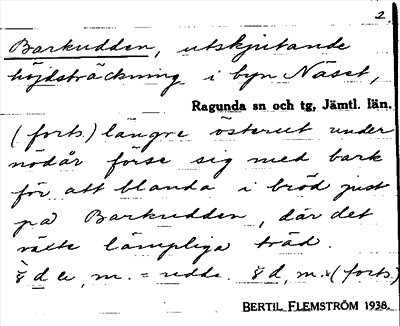 2.
Barkudden, utskjutande
höjdsträckning i byn Näset,
Ragunda sn och tg, Jämtl. län.
(forts.) längre österut under
nödår förse sig med bark
för att blanda i bröd just
på Barkudden, där det
växte lämpliga träd.
m. = udde. m. (forts)
BERTIL FLEMSTRÖM 1938.